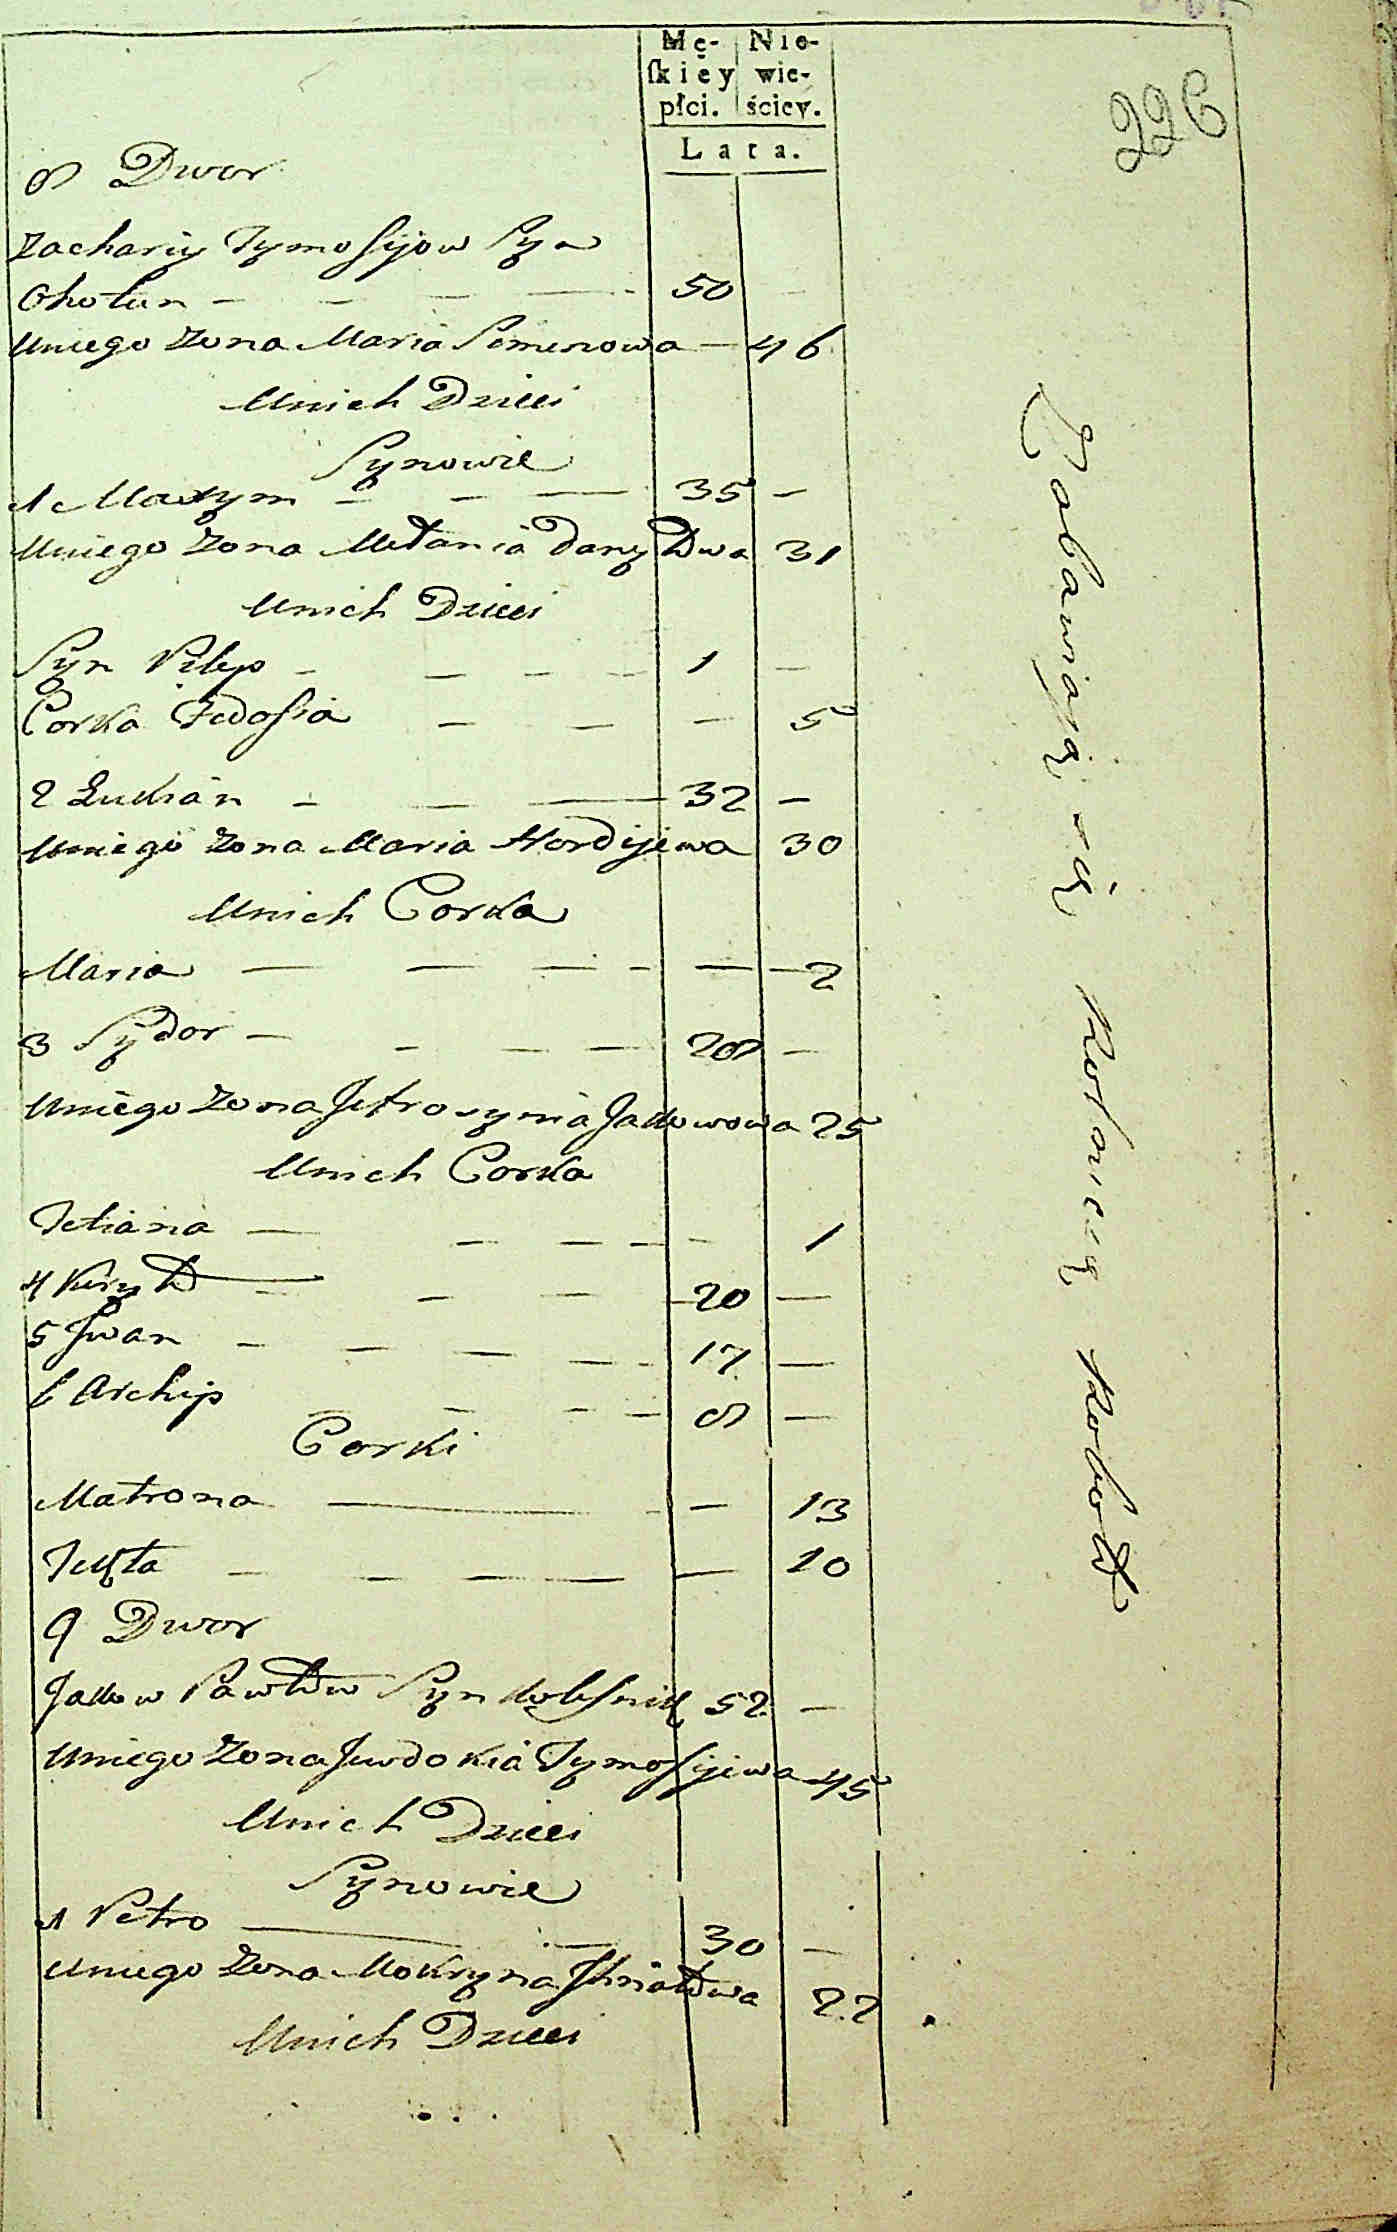 Mę- Nie-
ſkiey wie-
płci. ściey.
Lata.
226
8 Dwor
Zachariy Tymofijow Syn
Chołun — — — — 50 —
Uniego Zona Maria Semenowa — 46
Unich Dzieci
Synowie
1 Maxym — — — 35 —
Uniego Zona Mełania Daniłowa 31
Unich Dzieci
Syn Pilip — — — — 1 —
Corka Fedosia — — — 5
2 Łukian — — — 32 —
Uniego Zona Maria Hordijewa 30
Unich Corka
Maria — — — — — — 2
3 Sydor — — — — 28 —
Uniego Zona Jefrosynia Jakowowa 25
Unich Corka
Tetiana — — — — — 1
4 Kiryło — — — 20 —
5 Iwan — — — — — 17 —
6 Archip — — — 8 —
Corki
Matrona — — — 13
Tekla — — — — — 10
9 Dwor
Jakow Pawłow Syn Kolesnik 52 —
Uniego Zona Jewdokia Tymofijewa 45
Unich Dzieci
Synowie
1 Petro — — 30 —
Uniego Zona Mokryna 22
Unich Dzieci
Zabawiaią się Rolniczą Robotą